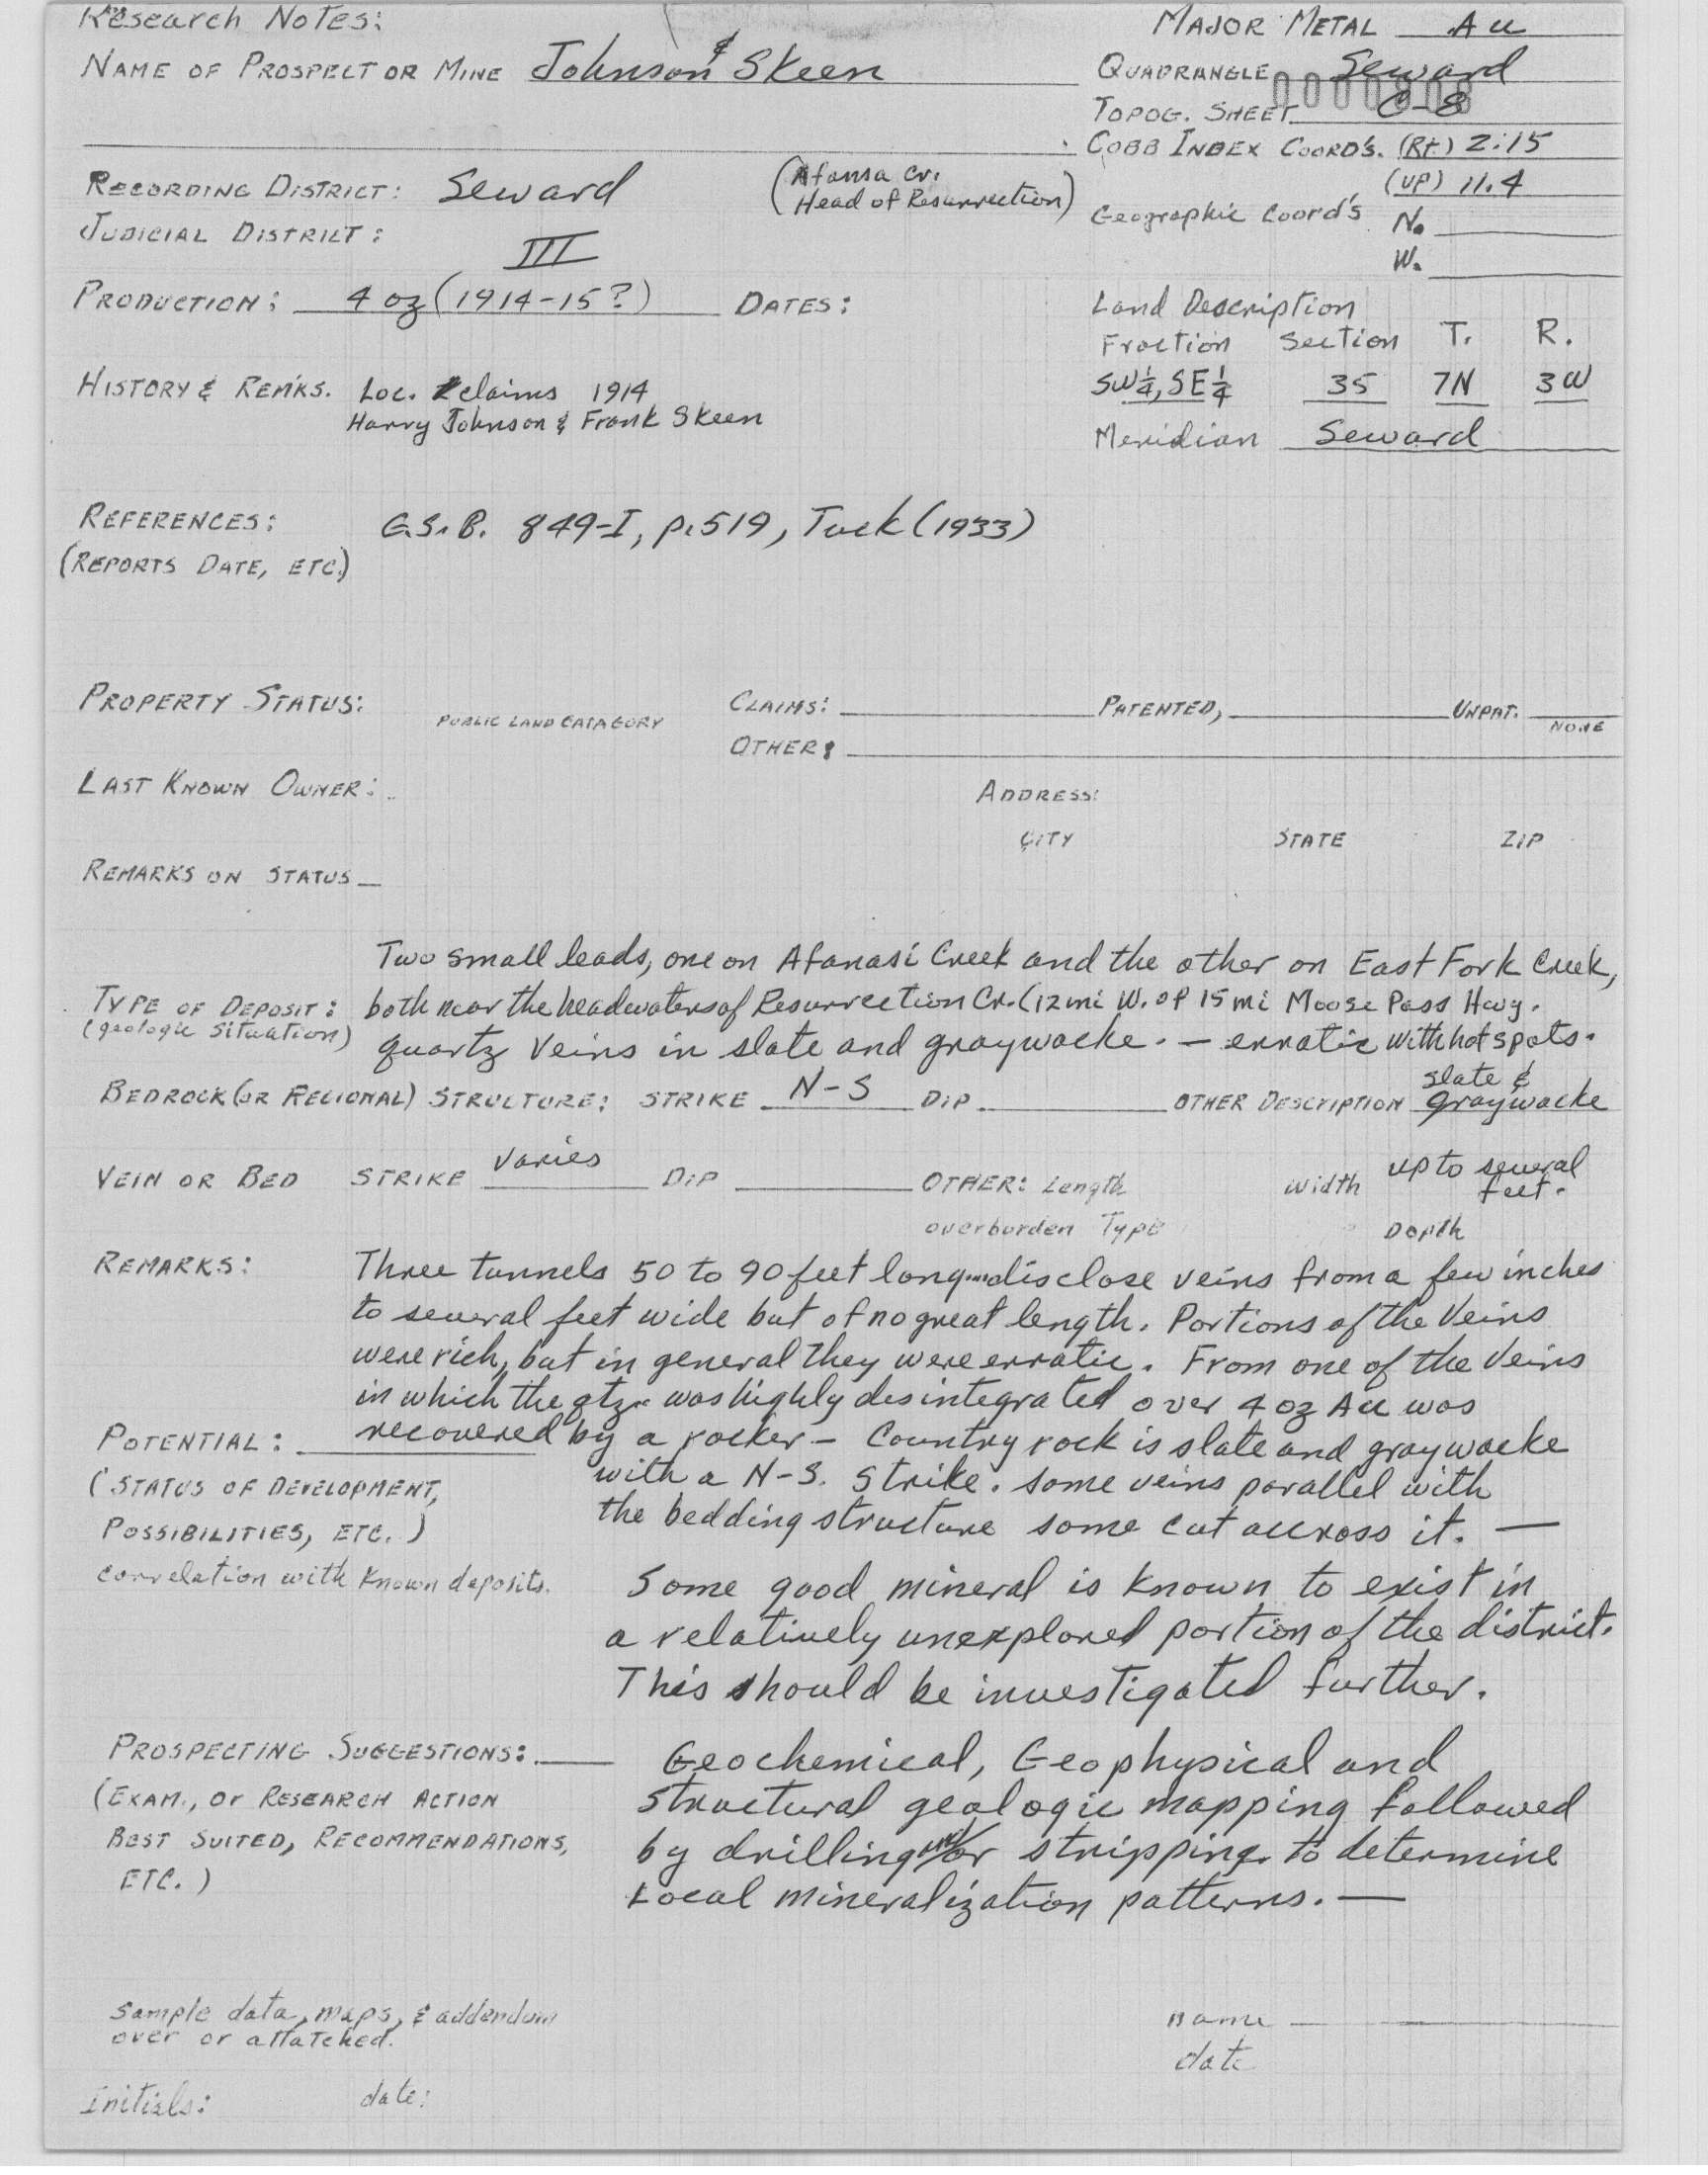 Research Notes:
MAJOR METAL Au
NAME OF PROSPECT OR MINE Johnson & Skeen
QUADRANGLE Seward
TOPOG. SHEET C-8
COBB INDEX COORD'S. (Rt.) 2:15
(UP) 11.4
RECORDING DISTRICT: Seward
(Afansa Cr.
Head of Resurrection)
Geographic Coord's N.
W.
JUDICIAL DISTRICT:
III
PRODUCTION: 4 oz (1914-15?) DATES:
Land Description
Fraction Section T. R.
SW¼, SE¼ 35 7N 3W
Meridian Seward
HISTORY & REM'KS. Loc. claims 1914
Harry Johnson & Frank Skeen
REFERENCES: G.S.B. 849-I, p.519, Tuck (1933)
(REPORTS DATE, ETC.)
PROPERTY STATUS:
PUBLIC LAND CATAGORY
CLAIMS: PATENTED, UNPAT.
NONE
OTHER:
LAST KNOWN OWNER:
ADDRESS:
CITY STATE ZIP
REMARKS ON STATUS
Two small leads, one on Afanasi Creek and the other on East Fork Creek,
TYPE OF DEPOSIT: both near the headwaters of Resurrection Cr. (12 mi W. of 15 mi Moose Pass Hwy.
(geologic situation) quartz veins in slate and graywacke. — erratic with hot spots.
BEDROCK (OR REGIONAL) STRUCTURE: STRIKE N-S DIP OTHER DESCRIPTION slate &
graywacke
VEIN OR BED STRIKE varies DIP OTHER: Length Width up to several
feet.
overburden Type Depth
REMARKS: Three tunnels 50 to 90 feet long....disclose veins from a few inches
to several feet wide but of no great length. Portions of the Veins
were rich, but in general they were erratic. From one of the Veins
in which the qtz. was highly desintegrated over 4 oz Au was
POTENTIAL: recovered by a rocker — Country rock is slate and graywacke
with a N-S. Strike. some veins parallel with
(STATUS OF DEVELOPMENT,
the bedding structure some cut accross it. —
POSSIBILITIES, ETC.)
correlation with known deposits.
Some good mineral is known to exist in
a relatively unexplored portion of the district.
This should be investigated further.
PROSPECTING SUGGESTIONS: Geochemical, Geophysical and
(EXAM., Or RESEARCH ACTION structural geologic mapping followed
BEST SUITED, RECOMMENDATIONS, by drilling and/or stripping. to determine
ETC.) Local mineralization patterns. —
Sample data, maps, & addendum
over or attatched.
name
date
Initials: date: